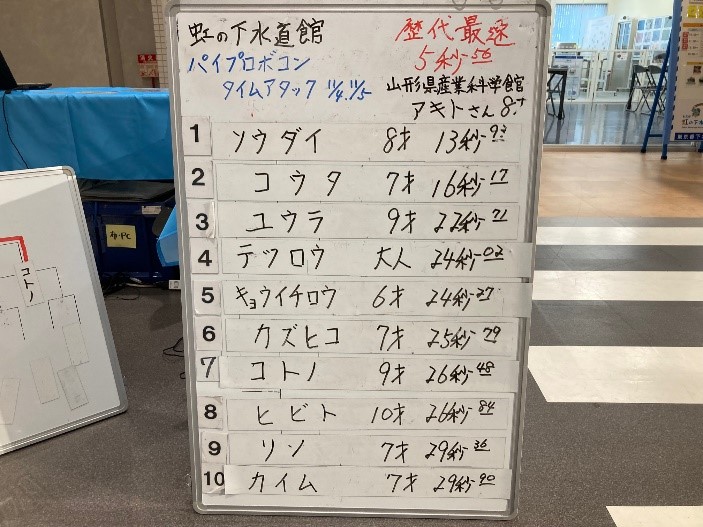 虹の下水道館
パイプロボコン
タイムアタック 11/4.11/5
歴代最速
5秒56
山形県産業科学館
アキトさん 8才
1 ソウダイ 8才 13秒93
2 コウタ 7才 16秒17
3 ユウラ 9才 22秒71
4 テツロウ 大人 24秒02
5 キョウイチロウ 6才 24秒27
6 カズヒコ 7才 25秒79
7 コトノ 9才 26秒48
8 ヒビト 10才 26秒84
9 リン 7才 29秒36
10 カイム 7才 29秒90
コトノ